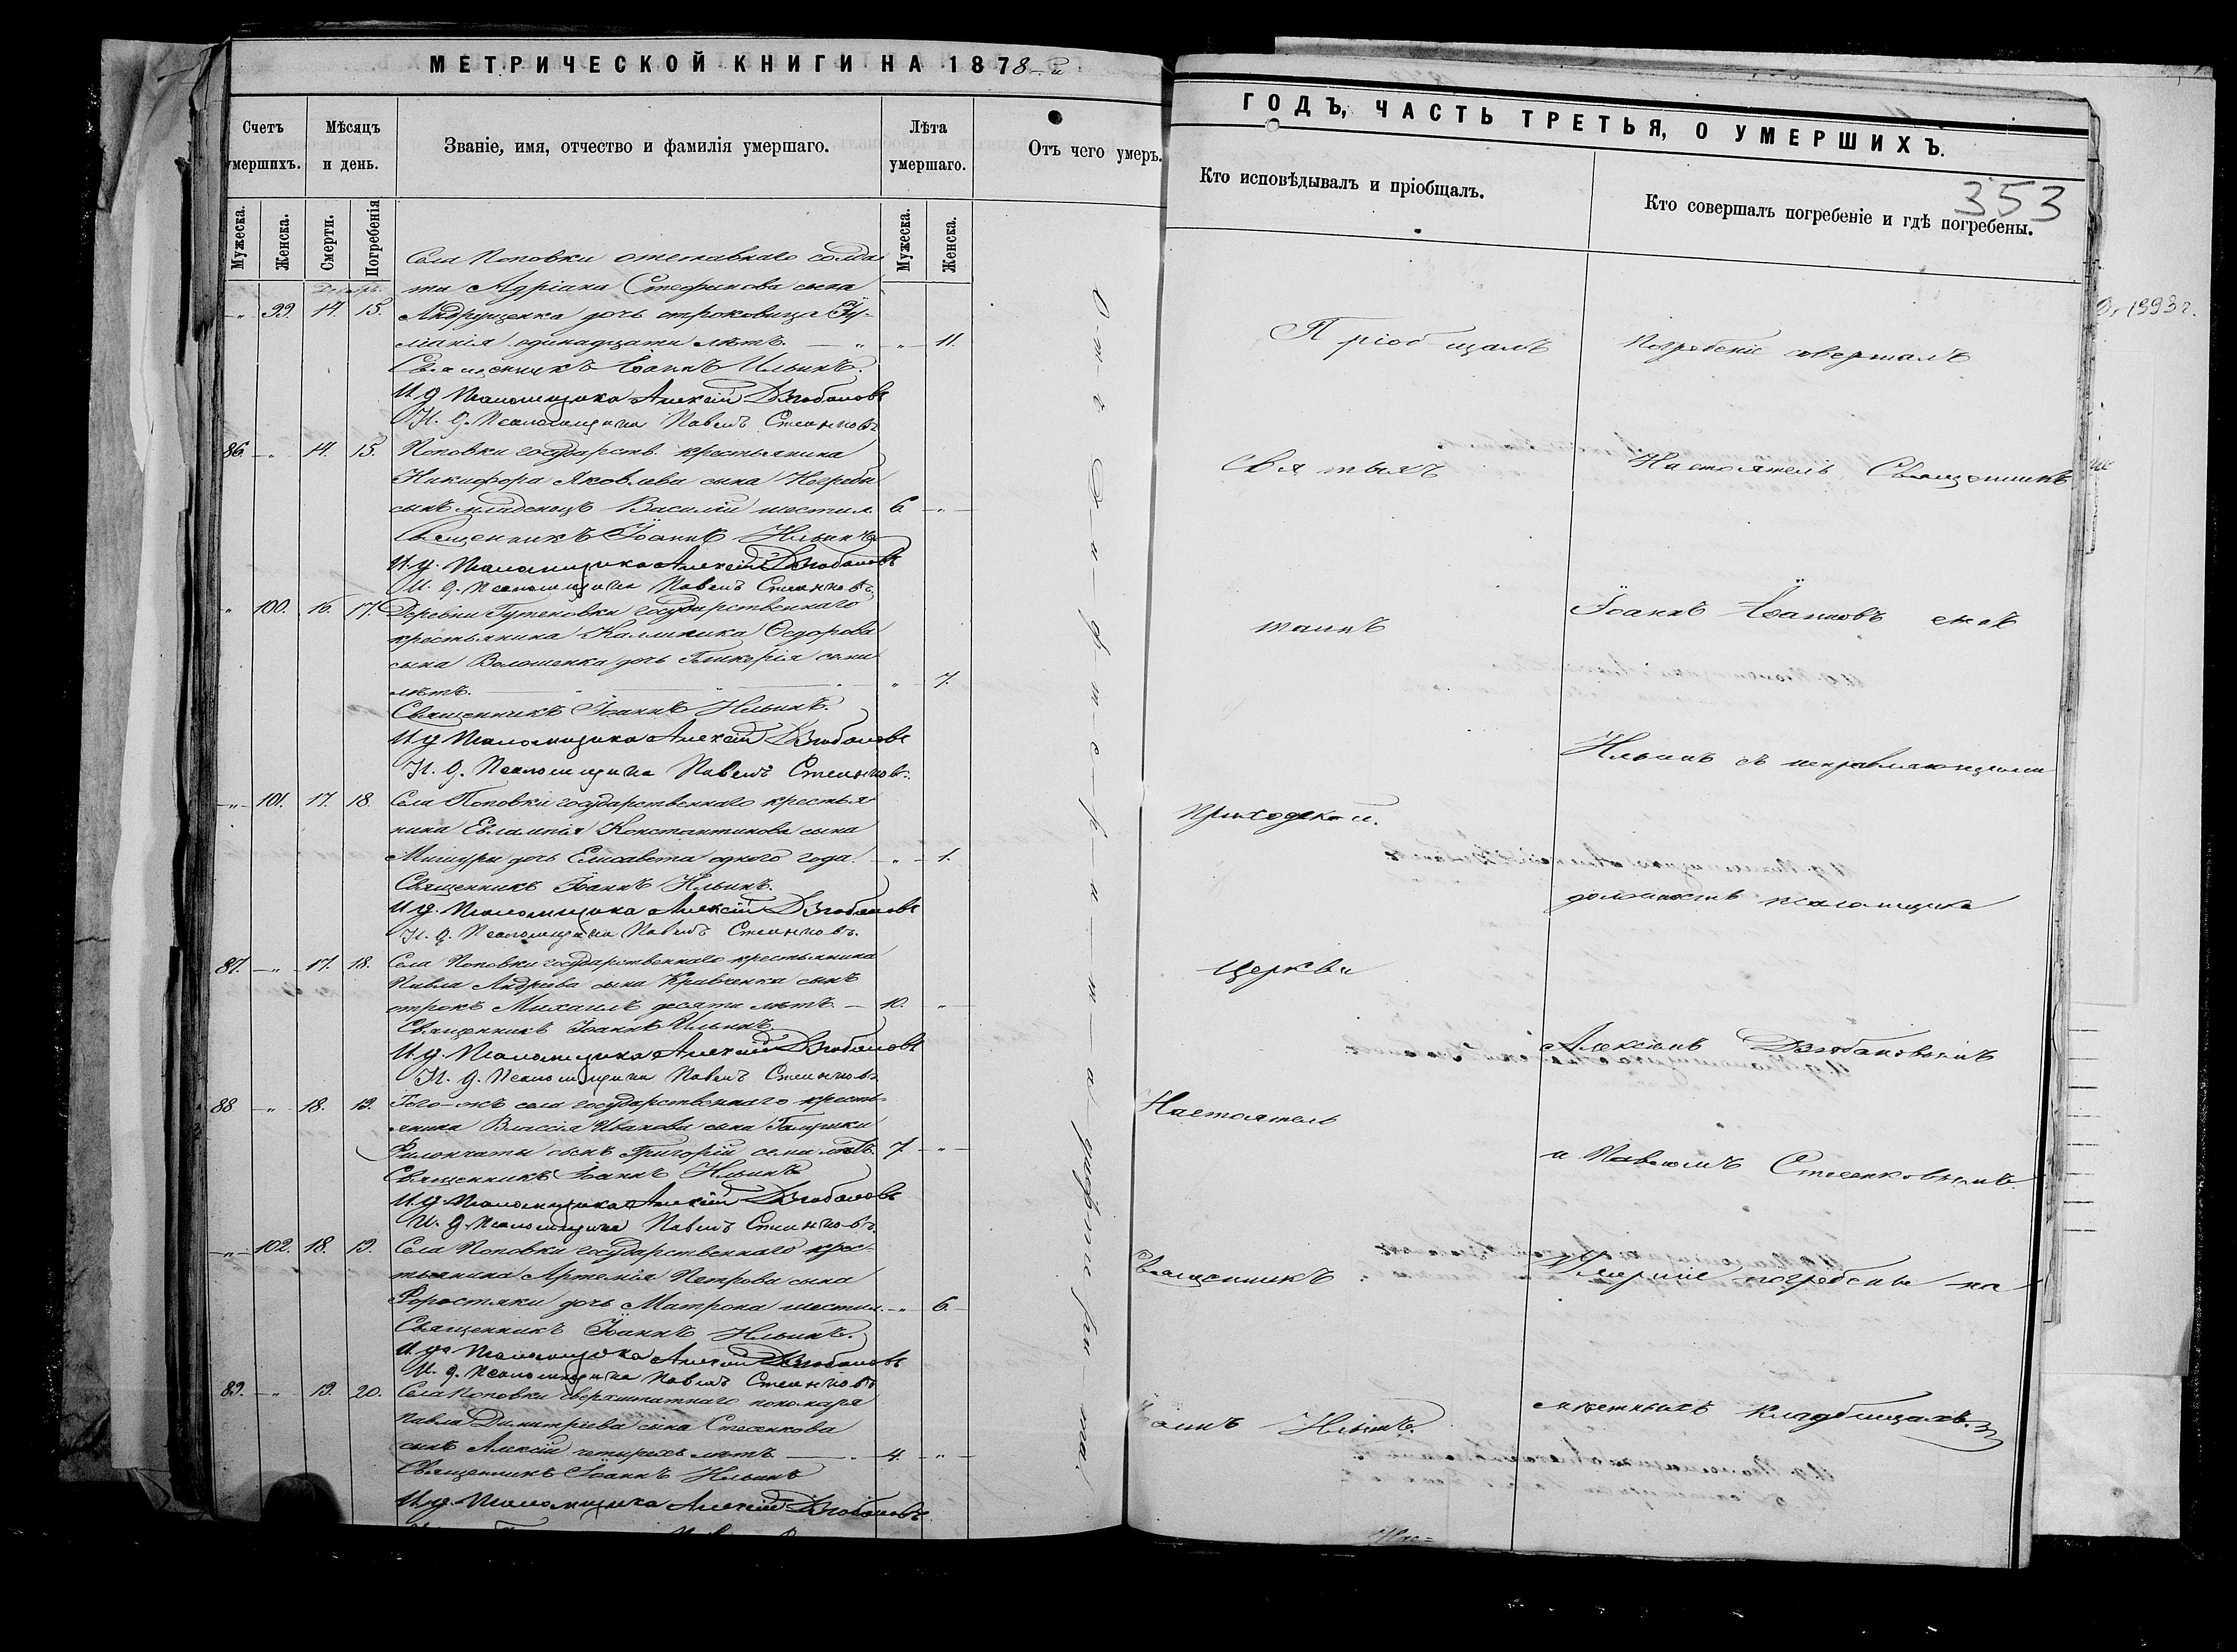 МЕТРИЧЕСКОЙ КНИГИ НА 1878-й
Счетъ умершихъ.
Мѣсяцъ и день.
Званіе, имя, отчество и фамилія умершаго.
Лѣта умершаго.
Отъ чего умеръ.
Мужеска.
Женска.
Смерти.
Погребенія
Мужеска.
Женска.
Села Поповки отставнаго солда
та Адріана Стефанова сына
Декабрь.
-"- 99. 14. 15. Андрущенка дочь отроковица
одинадцати лѣтъ. -"- 11.
Священникъ Іоаннъ Ильинъ.
И. д. Псаломщика Алексій Дзюбановъ
И. д. Псаломщика Павелъ Стеенковъ
86. -"- 14. 15. Поповки государств. крестьянина
Никифора Яковлева сына
сынъ младенецъ Василій шести л. 6. -"-
Священникъ Іоаннъ Ильинъ
И. д. Псаломщика Алексій Дзюбановъ
И. д. Псаломщика Павелъ Стеенковъ
" 100. 16. 17. Деревни Гутеновки государственнаго
крестьянина Каллиника Ѳедорова
сына Волошенка дочь Гликерія семи
лѣтъ. " 7.
Священникъ Іоаннъ Ильинъ.
И. д. Псаломщика Алексій Дзюбановъ
И. д. Псаломщика Павелъ Стеенковъ.
-"- 101. 17. 18. Села Поповки государственнаго крестья
нина Евлампія Константинова сына
Мишуры дочь Елисавета одного года. -"- 1.
Священникъ Іоаннъ Ильинъ.
И. д. Псаломщика Алексій Дзюбановъ
И. д. Псаломщика Павелъ Стеенковъ.
87. -"- 17. 18. Села Поповки государственнаго крестьянина
Павла Андреева сына Кравченка сынъ
отрокъ Михаилъ десяти лѣтъ. - 10. "
Священникъ Іоаннъ Ильинъ
И. д. Псаломщика Алексій Дзюбановъ
И. д. Псаломщика Павелъ Стеенковъ
88 -"- 18. 19. Того-жъ села государственнаго кресть-
янина Власія Иванова сына
сынъ Григорій семи лѣтъ. 7. -"-
Священникъ Іоаннъ Ильинъ
И. д. Псаломщика Алексій Дзюбановъ
И. д. Псаломщика Павелъ Стеенковъ.
-"- 102. 18. 19. Села Поповки государственнаго крес-
тьянина Артемія Петрова сына
Форостяки дочь Матрона шести л. -"- 6.
Священникъ Іоаннъ Ильинъ.
И. д. Псаломщика Алексій Дзюбановъ
И. д. Псаломщика Павелъ Стеенковъ
89. -"- 19. 20. Села Поповки сверхштатнаго пономаря
Павла Димитріева сына Стеенкова
сынъ Алексій четырехъ лѣтъ. 4. -"-
Священникъ Іоаннъ Ильинъ
И. д. Псаломщика Алексій Дзюбановъ
Отъ
ГОДЪ, ЧАСТЬ ТРЕТЬЯ, О УМЕРШИХЪ.
Кто исповѣдывалъ и пріобщалъ.
Кто совершалъ погребеніе и гдѣ погребены.
353
Пріобщалъ
Святыхъ
таинъ
приходской
церкви
Настоятель
Священникъ
Іоаннъ Ильинъ.
Погребеніе совершалъ
Настоятель Священникъ
Іоаннъ Іоанновъ сынъ
Ильинъ съ исправляющими
должность псаломщика
Алексіемъ Дзюбановымъ
и Павломъ Стеенковымъ.
Умершіе погребены на
мѣстныхъ кладбищахъ.
1993 г.